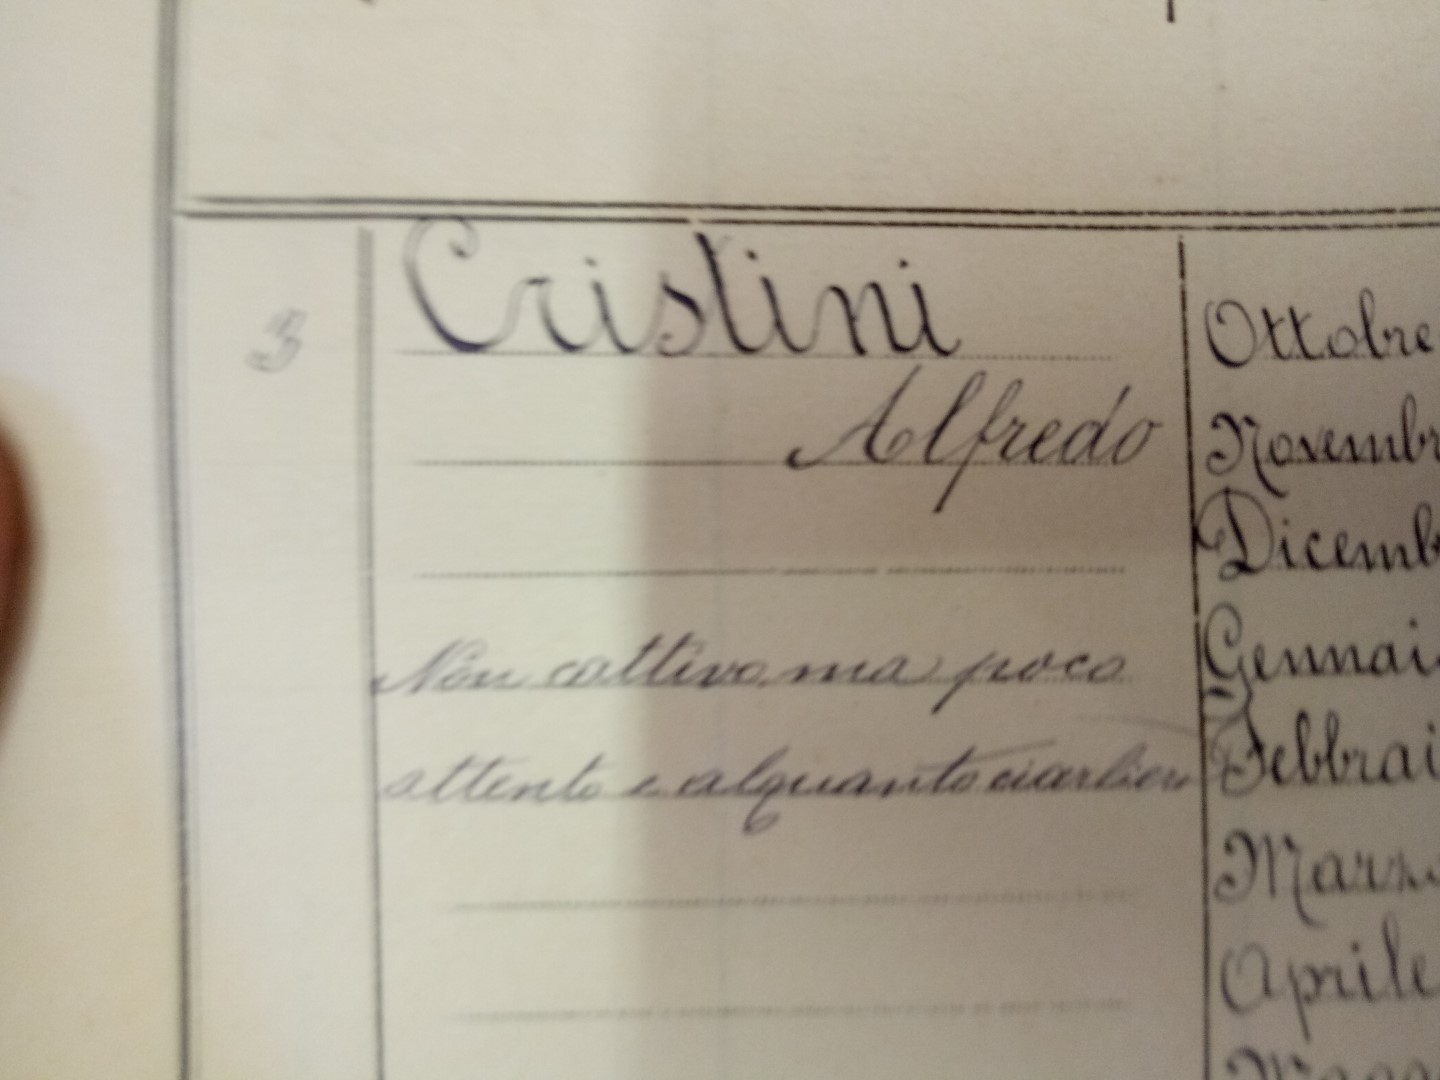 3
Cristini
Alfredo
Non cattivo, ma poco
attento e alquanto ciarliero
Ottobre
Novembr
Dicemb
Gennai
Febbrai
Marzo
Aprile